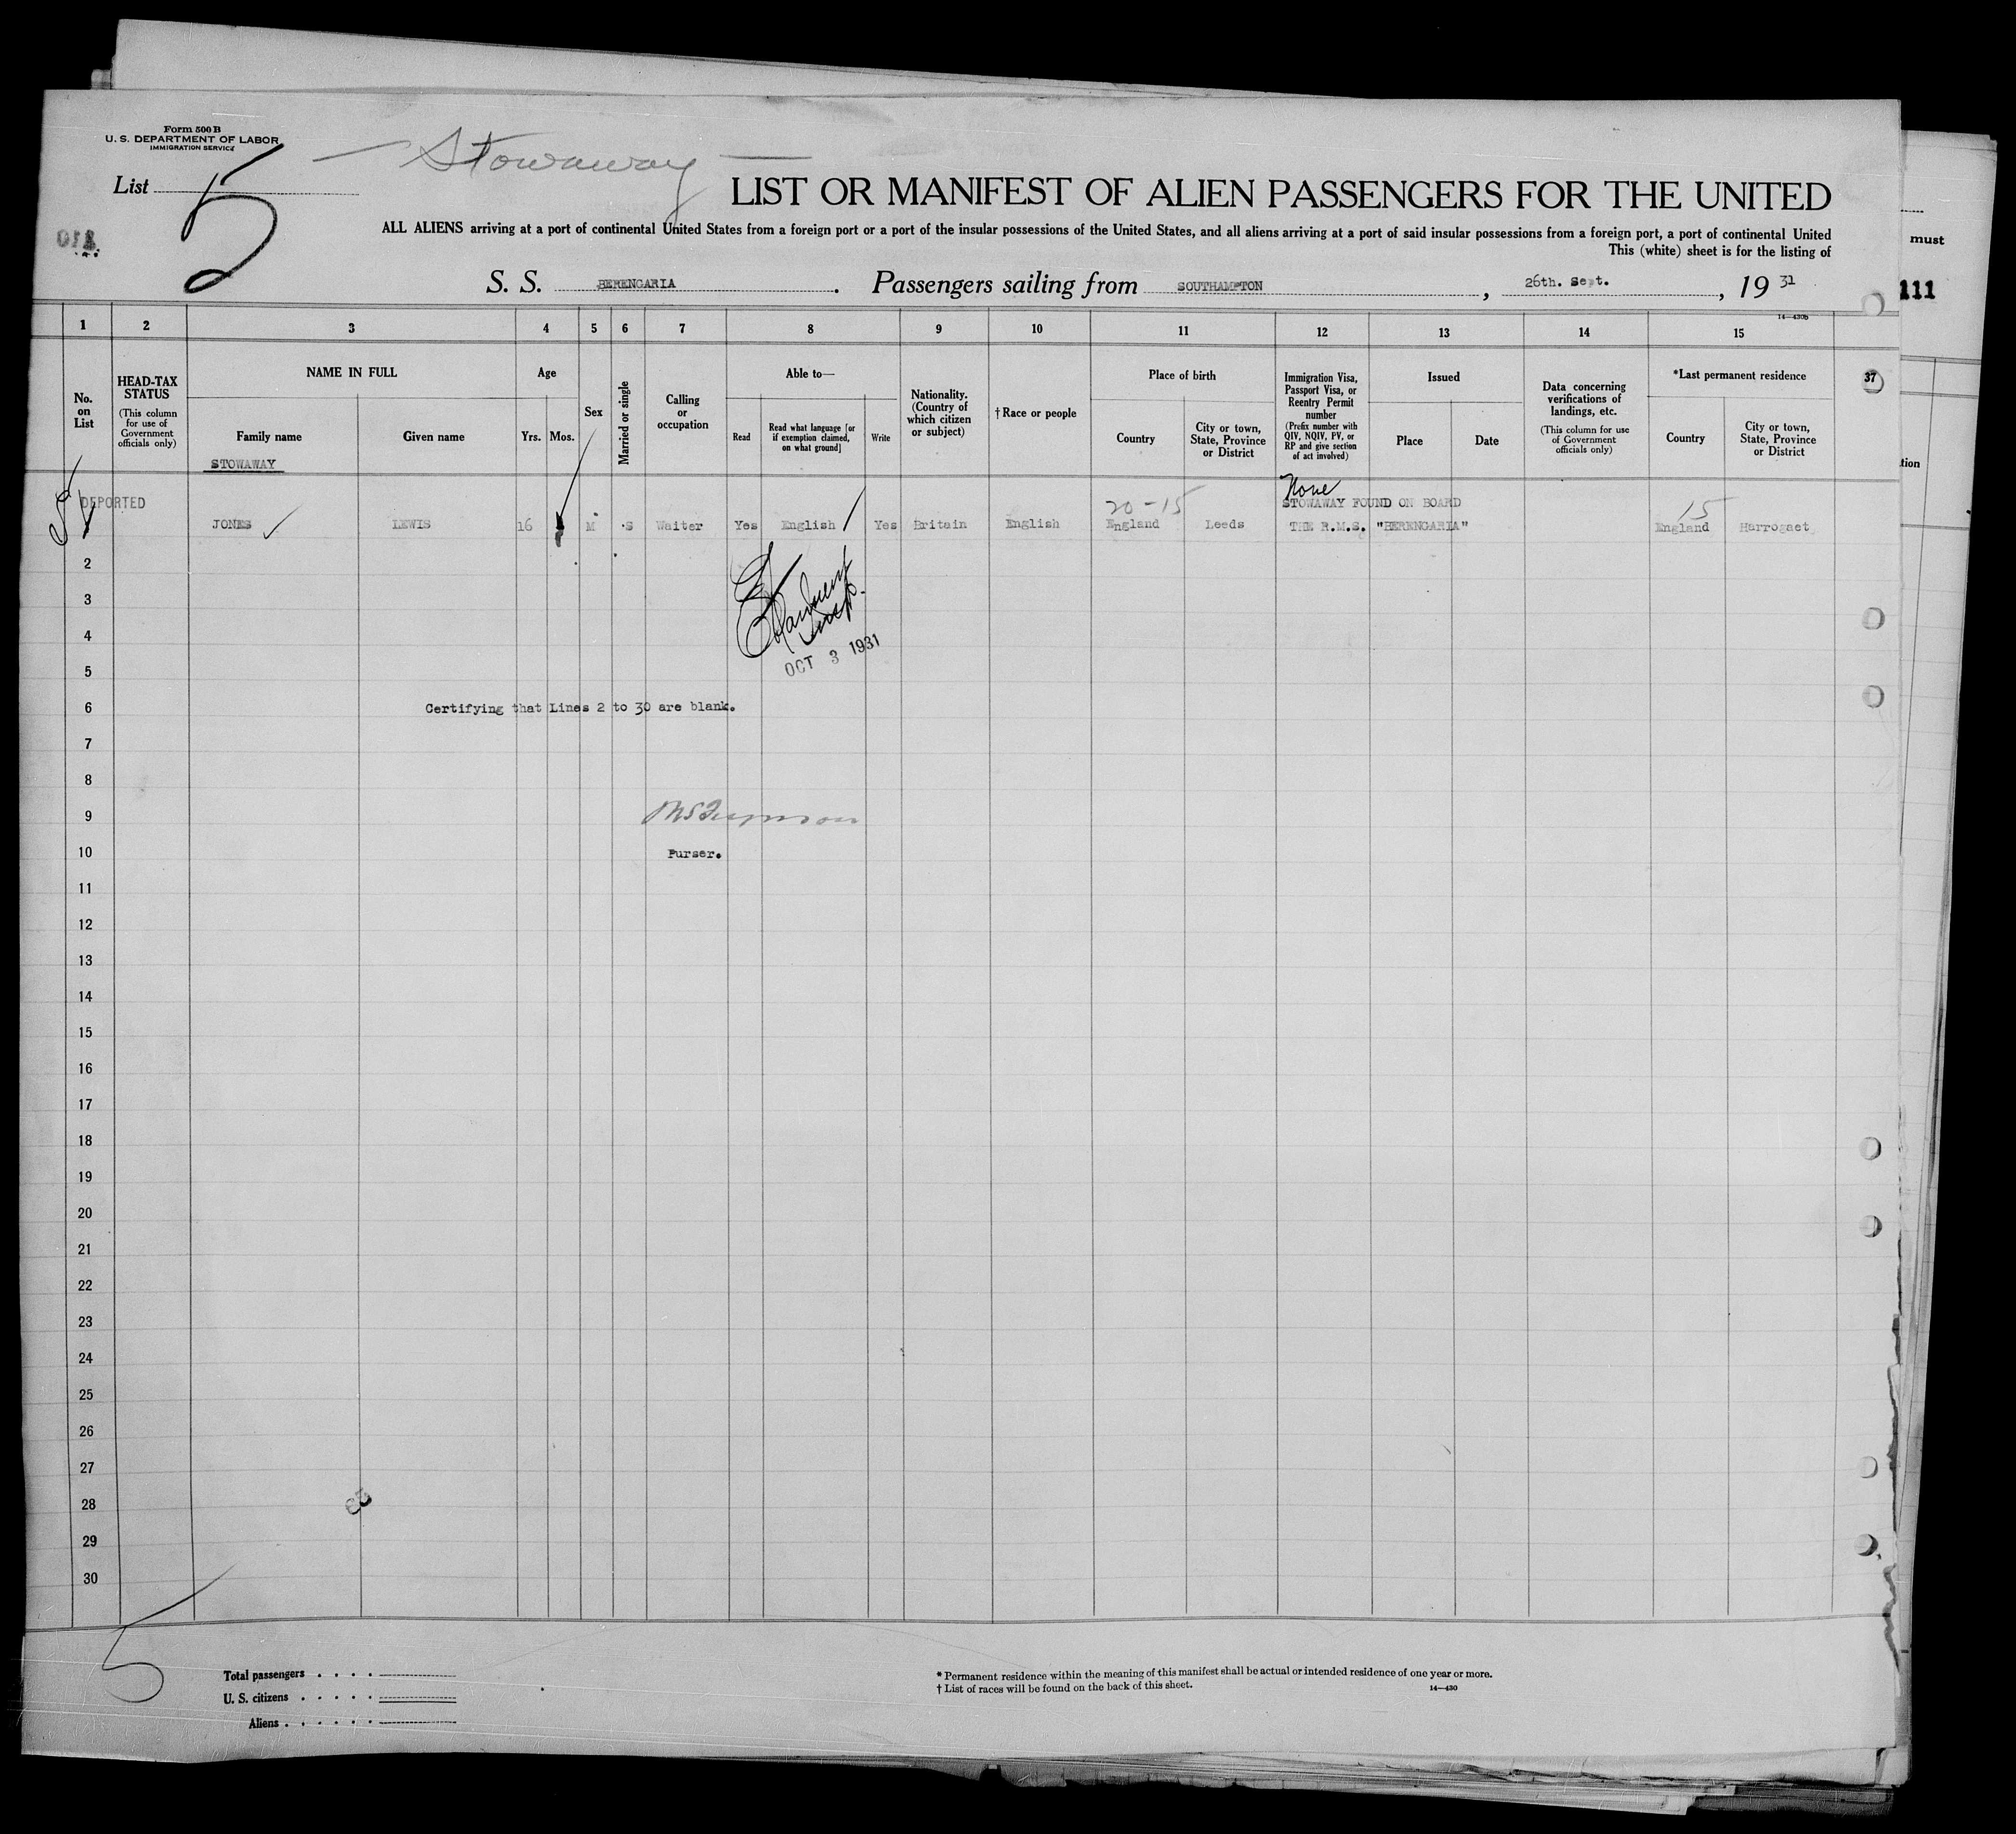 Form 500 B
U. S. DEPARTMENT OF LABOR
IMMIGRATION SERVICE
— Stowaway —
List 5
LIST OR MANIFEST OF ALIEN PASSENGERS FOR THE UNITED
ALL ALIENS arriving at a port of continental United States from a foreign port or a port of the insular possessions of the United States, and all aliens arriving at a port of said insular possessions from a foreign port, a port of continental United
This (white) sheet is for the listing of
must
S. S. BERENGARIA. Passengers sailing from SOUTHAMPTON, 26th. Sept., 19 31
111
14—430b
1 2 3 4 5 6 7 8 9 10 11 12 13 14 15
No. on List
HEAD-TAX STATUS
(This column for use of Government officials only)
NAME IN FULL
Family name
Given name
STOWAWAY
Age
Yrs.
Mos.
Sex
Married or single
Calling or occupation
Able to—
Read
Read what language [or if exemption claimed, on what ground]
Write
Nationality. (Country of which citizen or subject)
†Race or people
Place of birth
Country
City or town, State, Province or District
Immigration Visa, Passport Visa, or Reentry Permit number
(Prefix number with QIV, NQIV, PV, or RP and give section of act involved)
Issued
Place
Date
Data concerning verifications of landings, etc.
(This column for use of Government officials only)
*Last permanent residence
Country
City or town, State, Province or District
37
tion
DEPORTED
20-15
None
STOWAWAY FOUND ON BOARD
15
JONES LEWIS 16 M S Waiter Yes English Yes Britain English England Leeds THE R.M.S. "BERENGARIA" England Harrogaet
2
3
4
OCT 3 1931
5
6 Certifying that Lines 2 to 30 are blank.
7
8
9
10 Purser.
11
12
13
14
15
16
17
18
19
20
21
22
23
24
25
26
27
28
29
30
5
Total passengers . . . .
U. S. citizens . . . . .
Aliens . . . . . .
* Permanent residence within the meaning of this manifest shall be actual or intended residence of one year or more.
† List of races will be found on the back of this sheet.
14—430